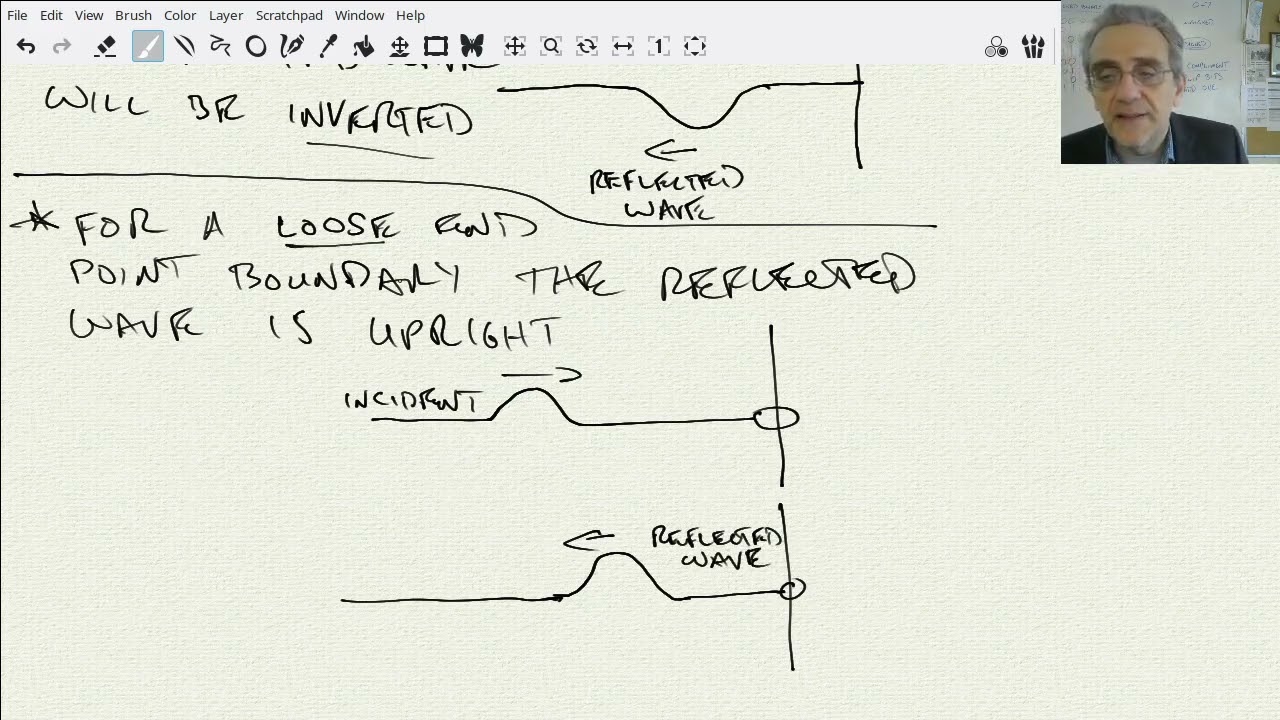 File Edit View Brush Color Layer Scratchpad Window Help
WILL BE INVERTED
REFLECTED
WAVE
* FOR A LOOSE END
POINT BOUNDARY THE REFLECTED
WAVE IS UPRIGHT
INCIDENT
REFLECTED
WAVE